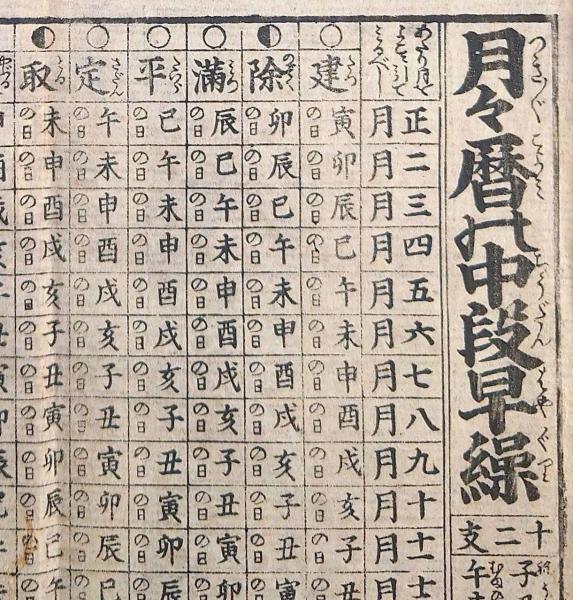 月々暦の中段早繰
十二支
正月 二月 三月 四月 五月 六月 七月 八月 九月 十月 十一月
建 寅の日 卯の日 辰の日 巳の日 午の日 未の日 申の日 酉の日 戌の日 亥の日 子の日 丑
除 卯の日 辰の日 巳の日 午の日 未の日 申の日 酉の日 戌の日 亥の日 子の日 丑の日 寅
滿 辰の日 巳の日 午の日 未の日 申の日 酉の日 戌の日 亥の日 子の日 丑の日 寅の日 卯
平 巳の日 午の日 未の日 申の日 酉の日 戌の日 亥の日 子の日 丑の日 寅の日 卯の日 辰
定 午の日 未の日 申の日 酉の日 戌の日 亥の日 子の日 丑の日 寅の日 卯の日 辰の日 巳
取 未の日 申の日 酉の日 戌の日 亥の日 子の日 丑の日 寅の日 卯の日 辰の日 巳の日 午